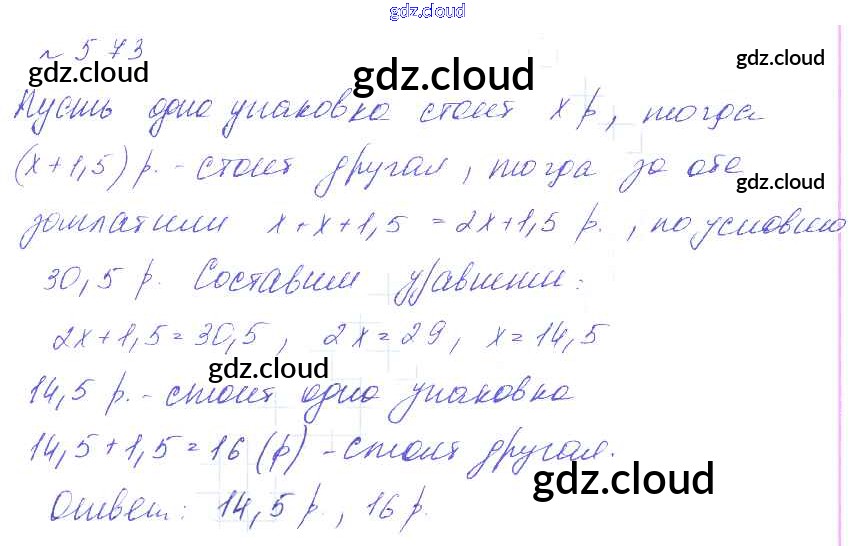 gdz.cloud
№ 573
gdz.cloud gdz.cloud gdz.cloud
Пусть одна упаковка стоит х р, тогда
(х+1,5) р. - стоит другая, тогда за обе
gdz.cloud
заплатили х+х+1,5 = 2х+1,5 р., по условию
30,5 р. Составим уравнение:
2х+1,5=30,5, 2х=29, х=14,5
gdz.cloud
14,5 р. - стоит одна упаковка
14,5+1,5=16 (р) - стоит другая.
gdz.cloud
Ответ: 14,5 р., 16 р.